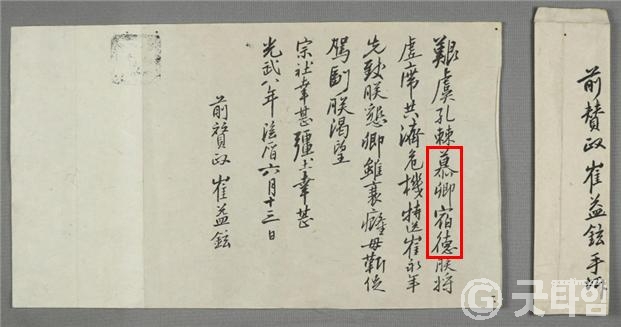 前賛政崔益鉉手
艱虞孔棘慕卿宿德朕將
虛席共濟危機特送崔永年
先致朕懇卿雖衰癃毋靳促
駕副朕渴望
宗社幸甚疆土幸甚
光武八年陰曆六月十三日
前賛政崔益鉉
굿타임